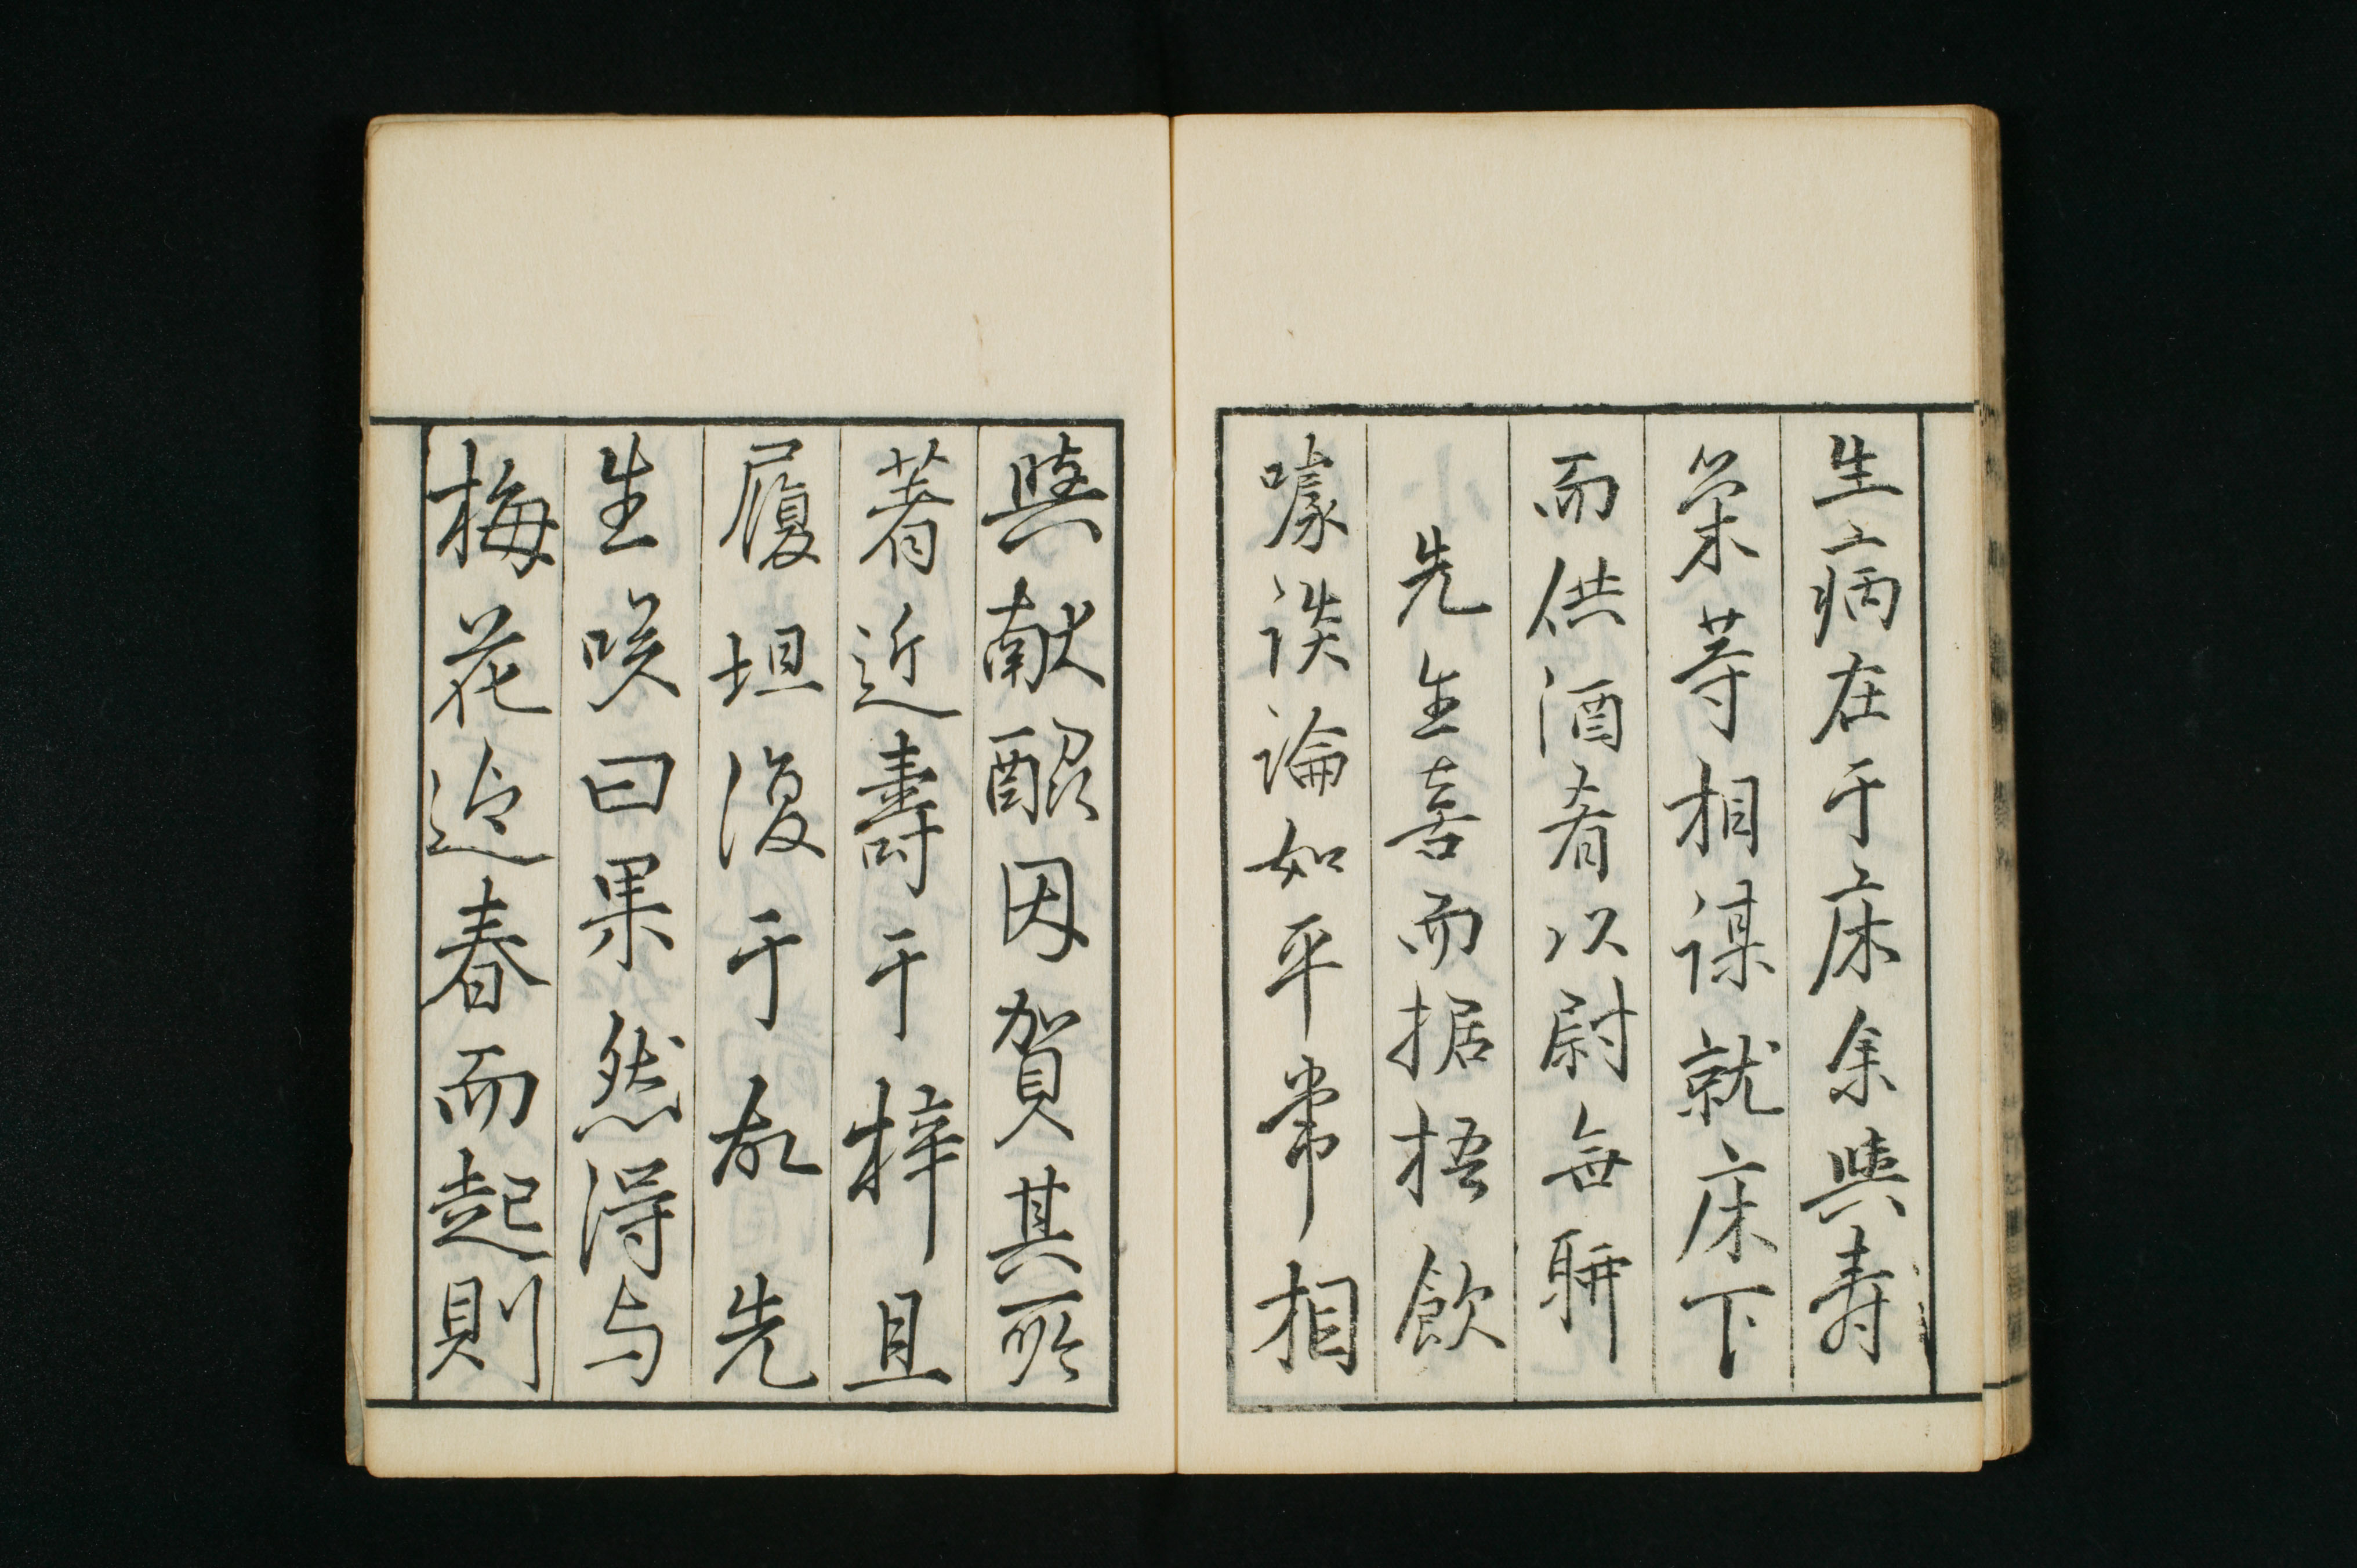 生病在于床余與寿
策等相謀就床下
而供酒肴以尉無聊
先生喜而据梧飲
噱談論如平常相
與献酬因賀其所
著近壽于梓且
履坦復于故先
生咲曰果然得与
梅花迨春而起則